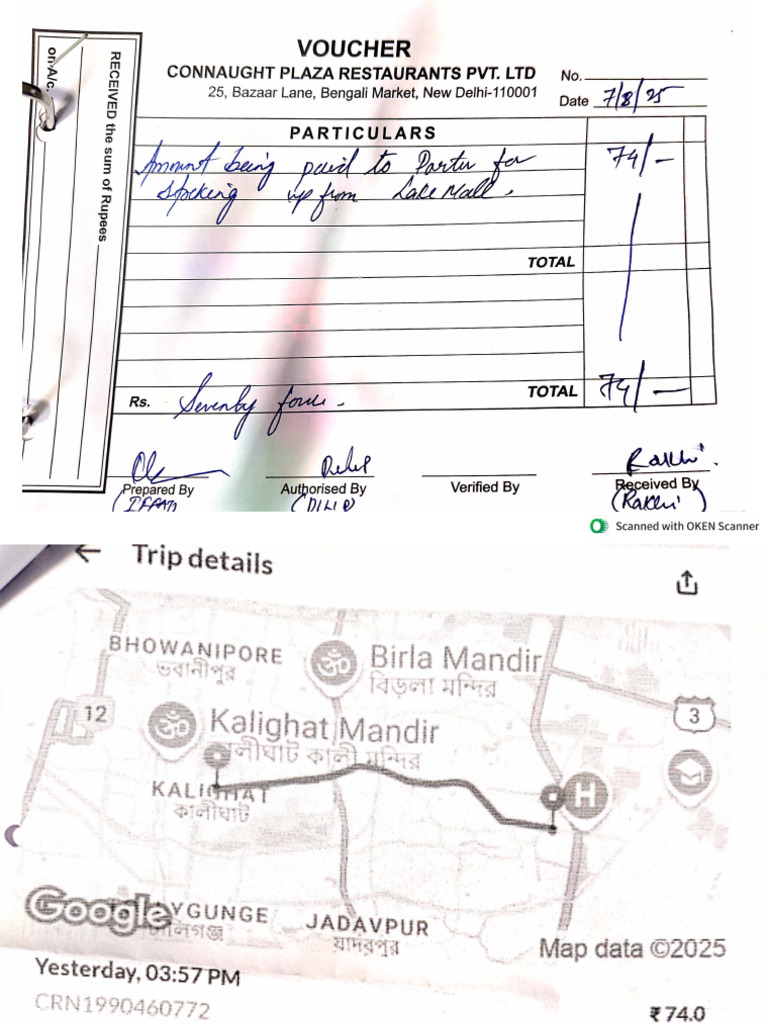 VOUCHER
CONNAUGHT PLAZA RESTAURANTS PVT. LTD
25, Bazaar Lane, Bengali Market, New Delhi-110001
No.
Date 7/8/25
RECEIVED the sum of Rupees
on A/c.
PARTICULARS
Amount being paid to Porter for 74/-
stocking up from Lake Mall.
TOTAL
Rs. Seventy four - TOTAL 74/-
Prepared By Authorised By Verified By Received By
(DILIP) (Rakhi)
Scanned with OKEN Scanner
Trip details
BHOWANIPORE
ভবানীপুর
Birla Mandir
বিড়লা মন্দির
12
3
Kalighat Mandir
কালীঘাট কালী মন্দির
KALIGHAT
কালীঘাট
H
Google
YGUNGE
লিগঞ্জ
JADAVPUR
যাদবপুর
Map data ©2025
Yesterday, 03:57 PM
CRN1990460772
₹74.0